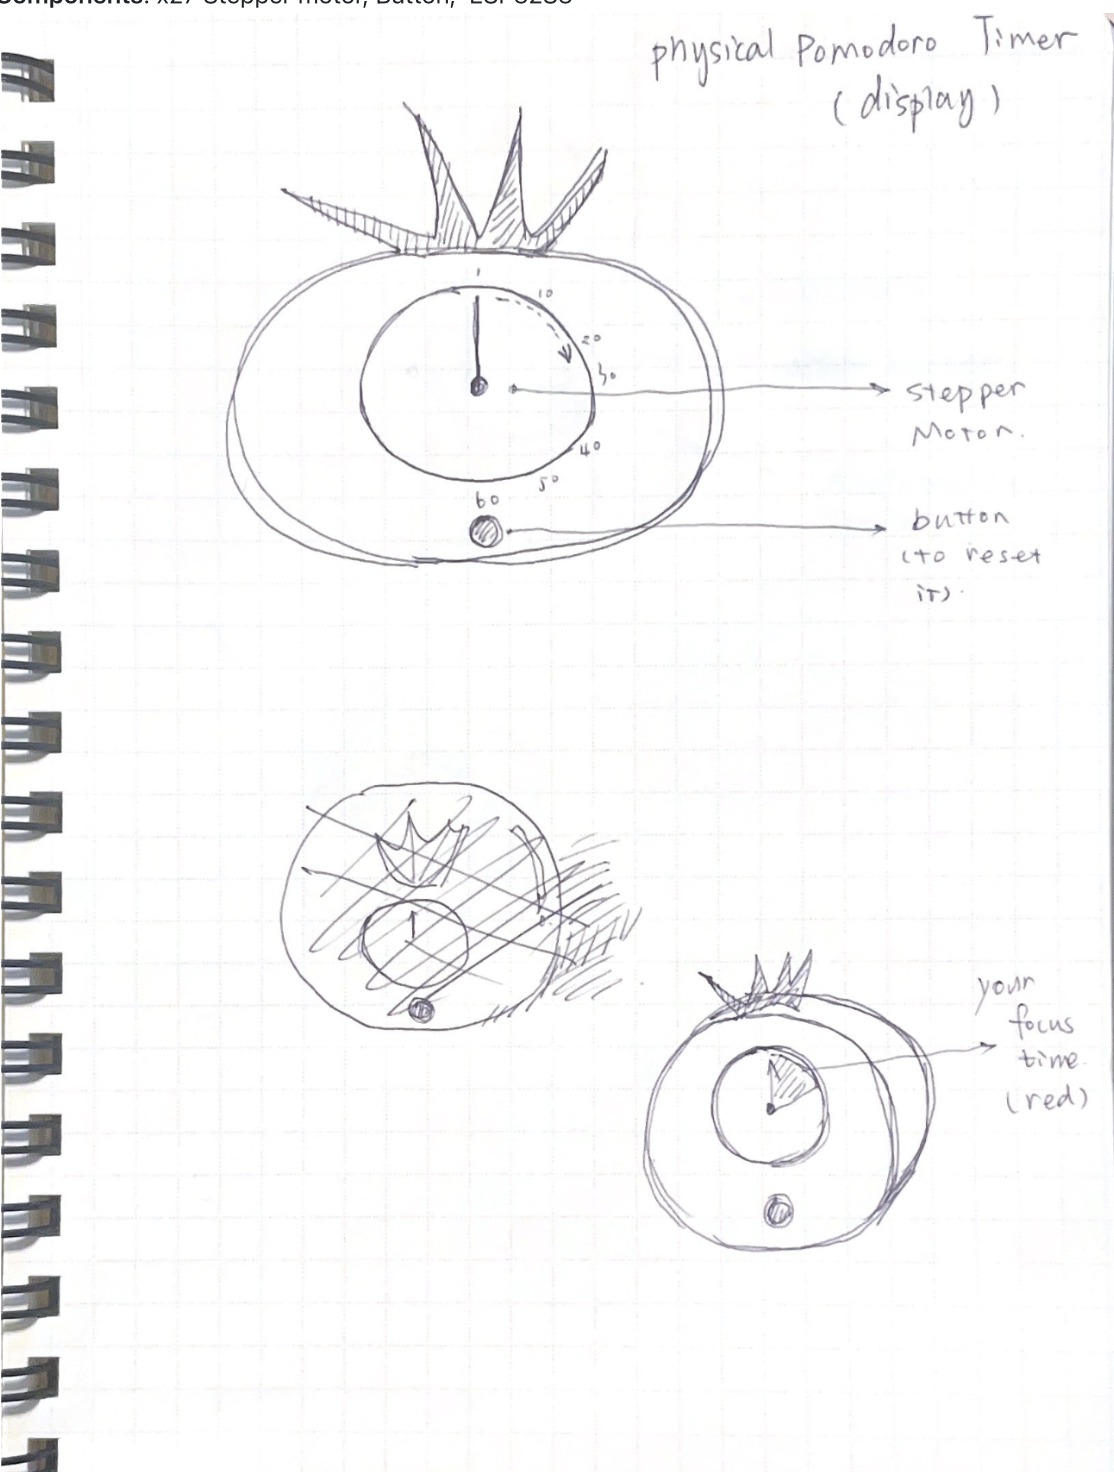 Components: x27 Stepper motor, Button, ESP32S3
physical Pomodoro Timer
(display)
1
10
20
30
40
50
60
stepper
Motor.
button
(to reset
it).
your
focus
time
(red)